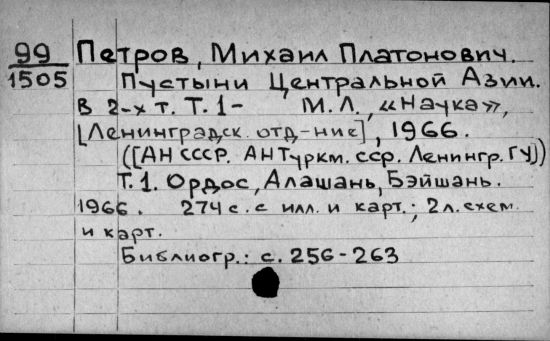 99 Петров, Михаил Платонович.
1505 Пустыни Центральной Азии.
В 2-х т. Т.1- М.Л., «Наука»,
[Ленинградск. отд-ние], 1966.
([АН СССР. АН Туркм. сср. Ленингр. ГУ])
Т.1. Ордос, Алашань, Бэйшань.
1966. 274 с. с илл. и карт.; 2 л. схем.
и карт.
Библиогр.: с. 256-263